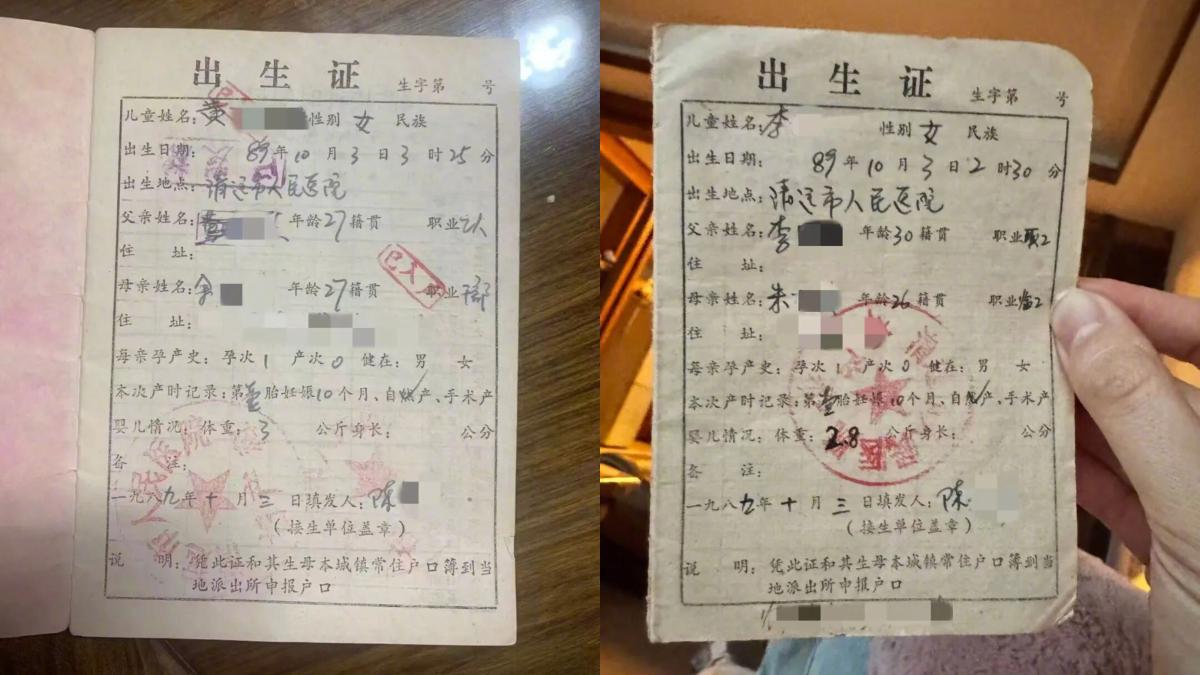 出生证
生字第 号
儿童姓名：黄 性别 女 民族
出生日期： 89年10月3日3时25分
出生地点：清远市人民医院
父亲姓名： 年龄27籍贯 职业
住 址：
母亲姓名： 年龄27籍贯 职业
住 址：
每亲孕产史：孕次1 产次0 健在：男 女
本次产时记录：第壹胎妊娠10个月、自然产、手术产
婴儿情况：体重：3 公斤身长： 公分
备 注：
一九八九年十月三日填发人：陈
（接生单位盖章）
说 明：凭此证和其生母本城镇常住户口簿到当
地派出所申报户口
出生证
生字第 号
儿童姓名：李 性别 女 民族
出生日期： 89年10月3日2时30分
出生地点：清远市人民医院
父亲姓名：李 年龄30籍贯 职业
住 址：
母亲姓名：朱 年龄26籍贯 职业
住 址：
每亲孕产史：孕次1 产次0 健在：男 女
本次产时记录：第壹胎妊娠10个月、自然产、手术产
婴儿情况：体重：2.8 公斤身长： 公分
备 注：
一九八九年十月三日填发人：陈
（接生单位盖章）
说 明：凭此证和其生母本城镇常住户口簿到当
地派出所申报户口